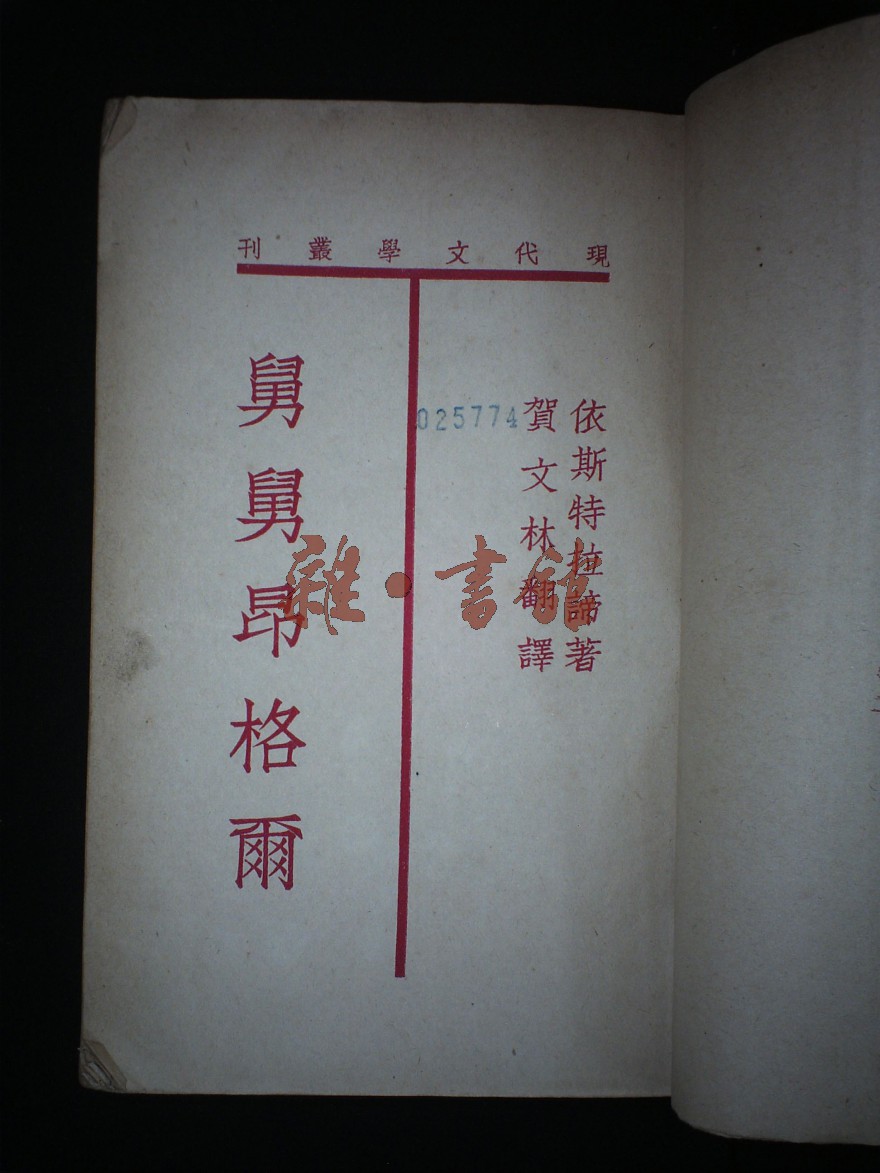 現代文學叢刊
依斯特拉諦著
賀文林翻譯
025774
舅舅昂格爾
雜·書館